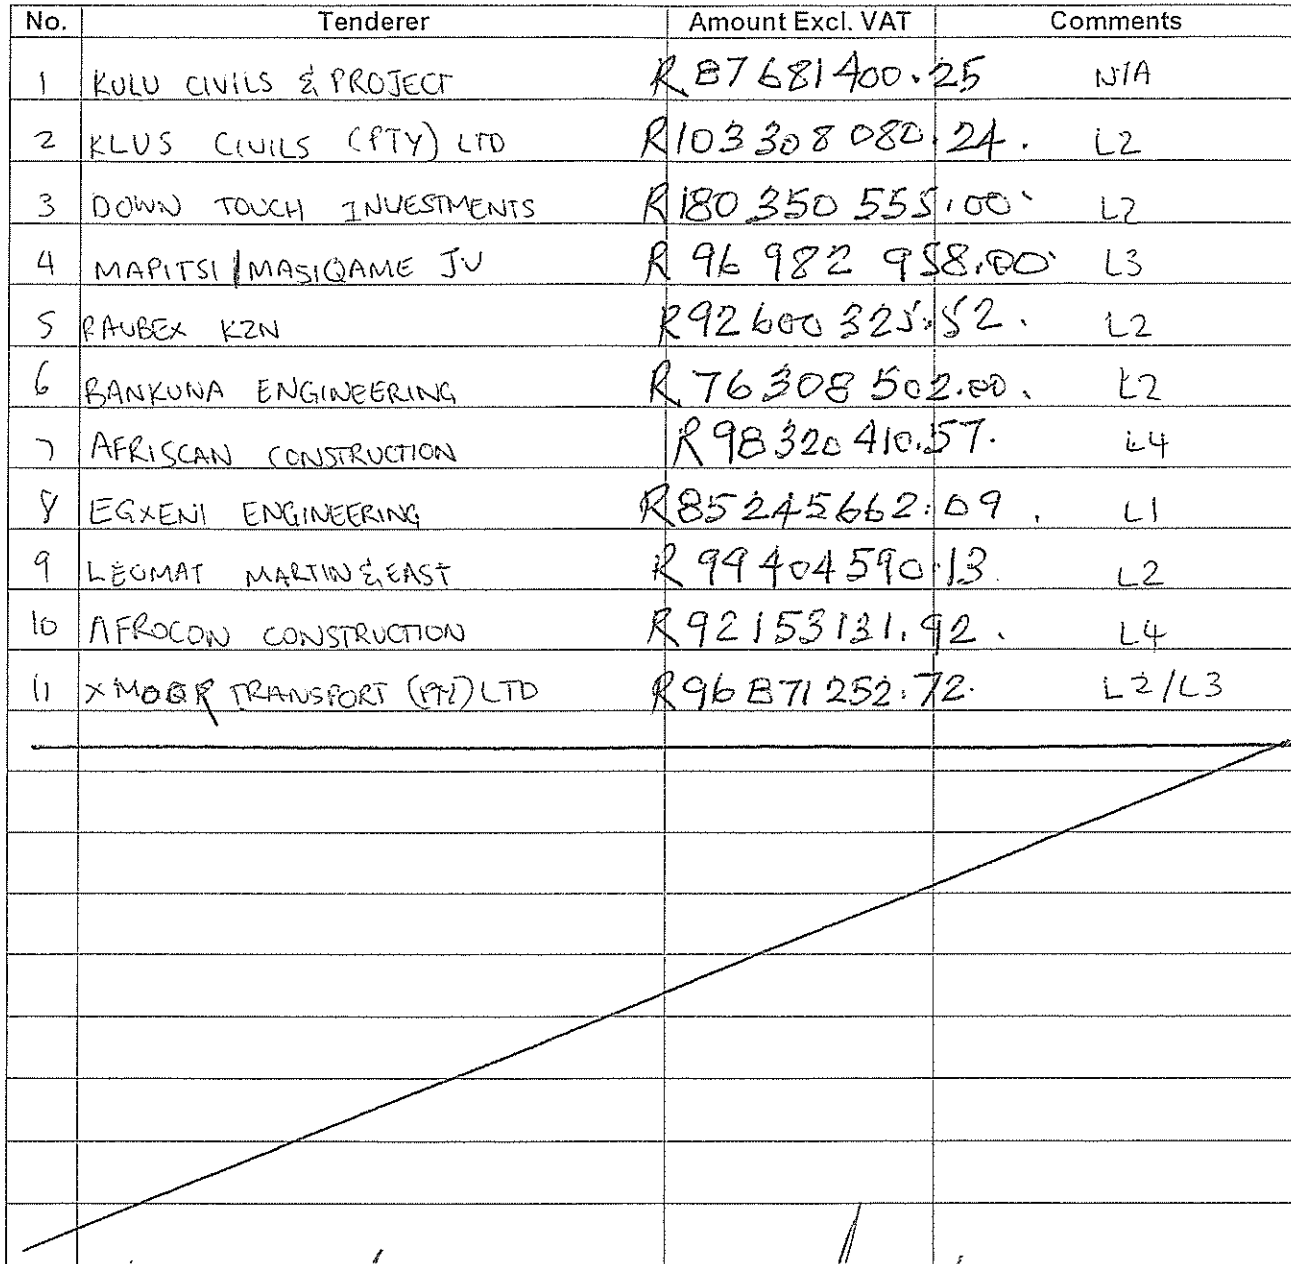 No. Tenderer Amount Excl. VAT Comments
1 KULU CIVILS & PROJECT R 87 681 400.25 N/A
2 KLUS CIVILS (PTY) LTD R103 308 080.24. L2
3 DOWN TOUCH INVESTMENTS R180 350 555.00 L2
4 MAPITSI/MASIQAME JV R 96 982 958.00 L3
5 RAUBEX KZN R92 600 325.52. L2
6 BANKUNA ENGINEERING R 76 308 502.00. L2
7 AFRISCAN CONSTRUCTION R 98 320 410.57. L4
8 EGXENI ENGINEERING R85245662.09. L1
9 LEOMAT MARTIN & EAST R 99 404 590.13. L2
10 AFROCON CONSTRUCTION R 92153131.92. L4
11 TRANSPORT (PTY) LTD R96 871 252.72. L2/L3